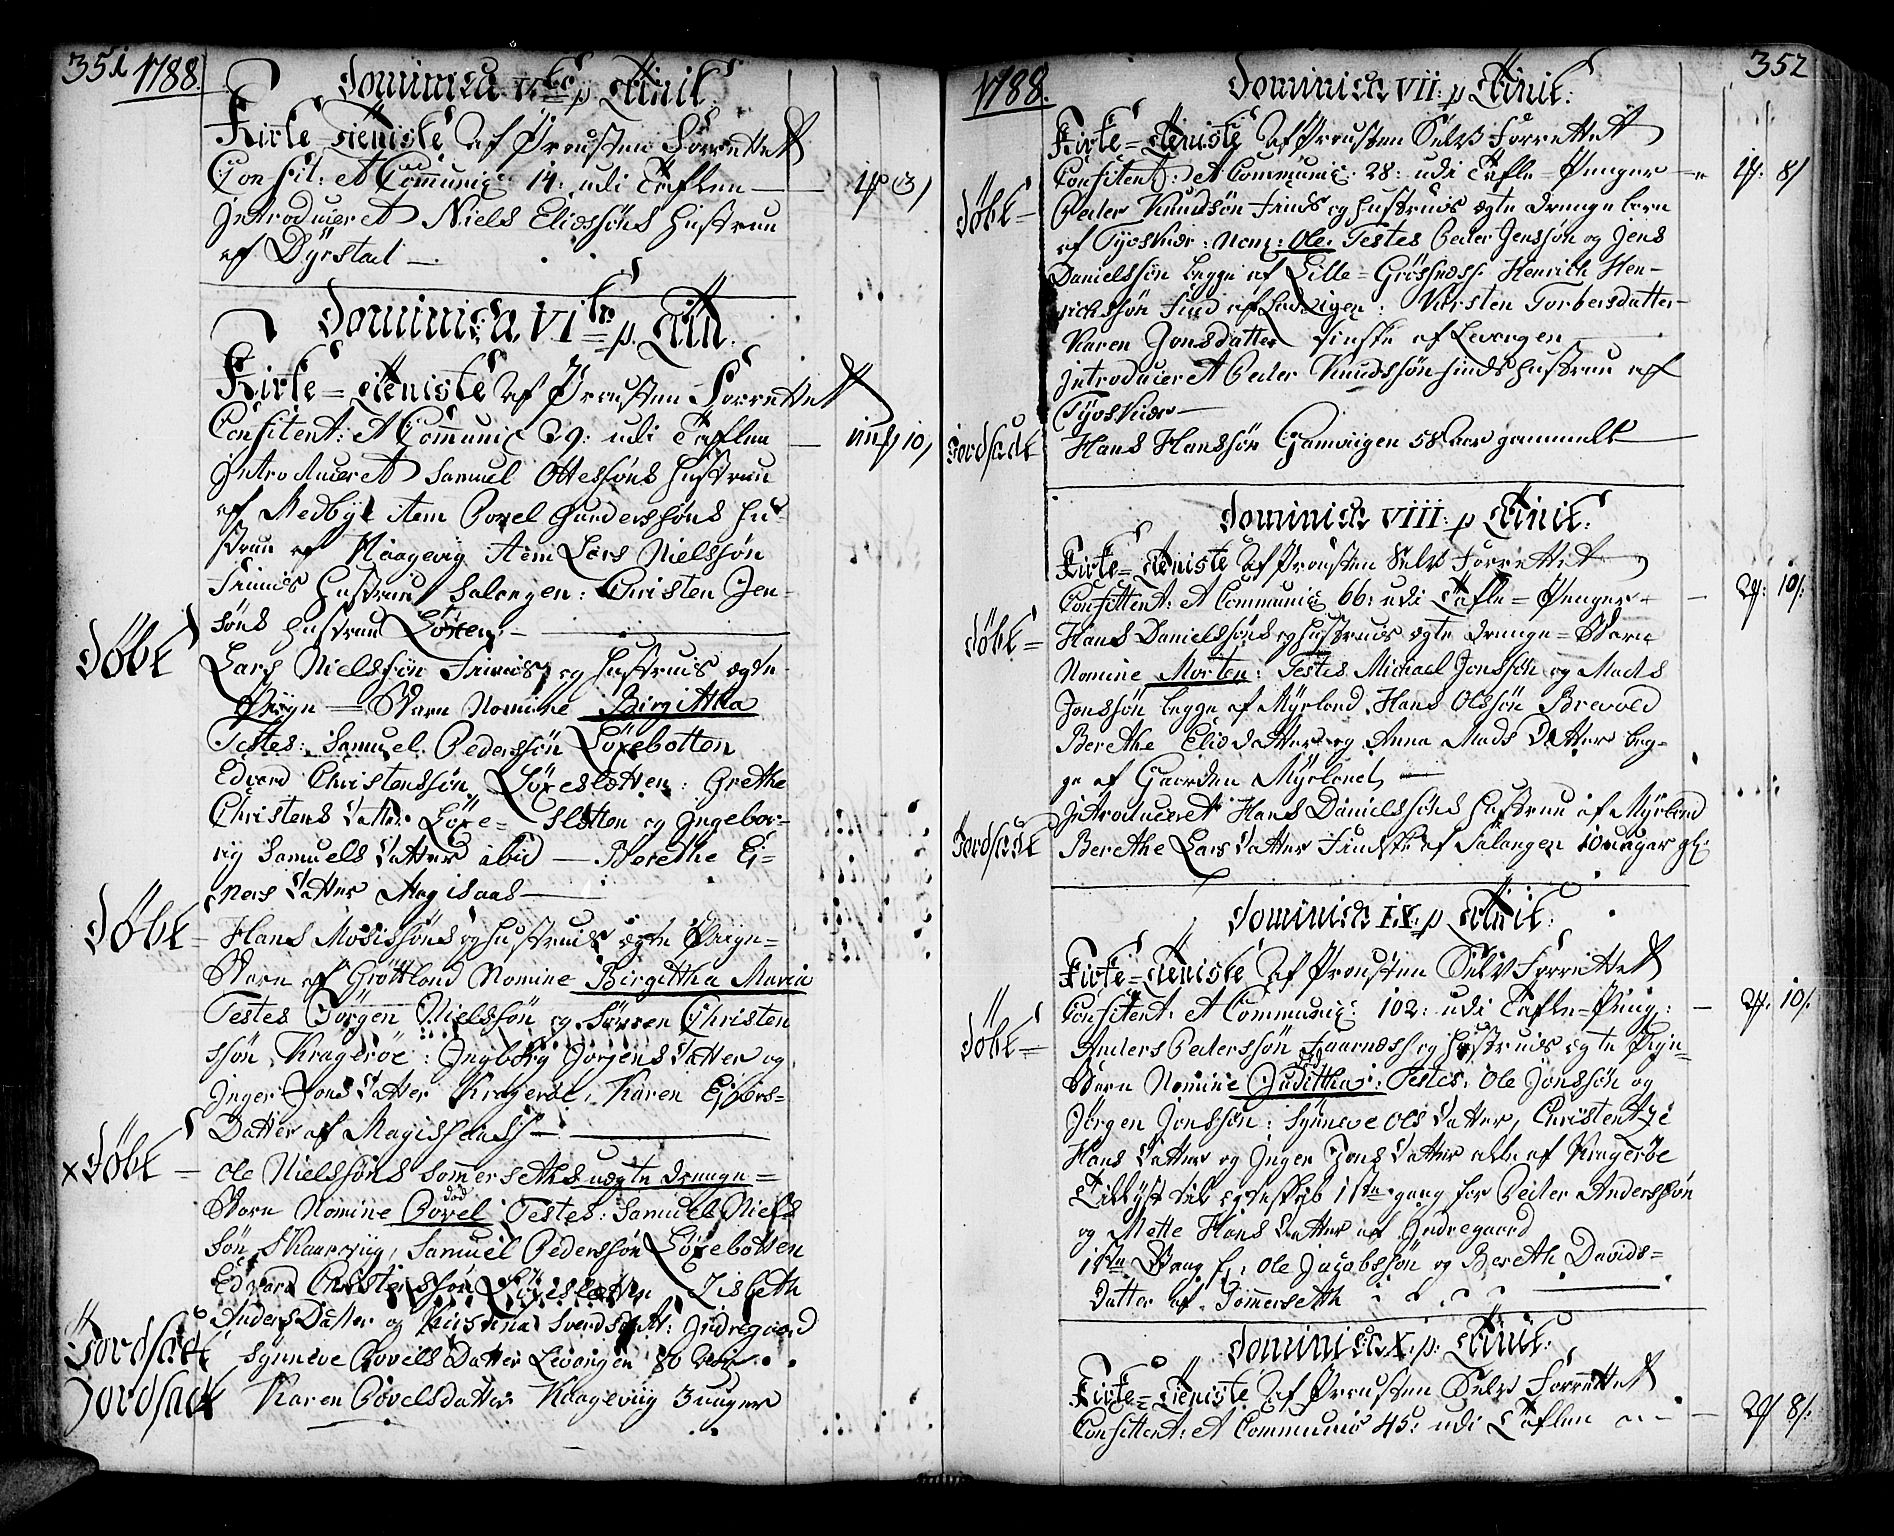 351 1788.
Dominica V te p Trinit:
Kirke-Tieniste af Prousten Forrettet
Confit: et Com̄unic 14: udi Taflen —
Introduceret Niels Eliassøns Hustrue
af Dyrstad —
Dominica VI te p. Trin.
Kirke=Tieniste af Prousten Forrettet
Confitent: et Com̄unic 29: udi Taflen — 10
Introduceret Samuel Ottessøns Hustrue
af Medbye item Povel Gunderssøns Hu-
strue af Haagevig item Lars Nielssøn
Finnes Hustrue Salangen: Christen Jen-
søns Hustrue
Døbt
Lars Nielssøn Finnes og Hustrues ægte
Piige = Barn Nomine Birgitha
Testes: Samuel Pederssøn Løxebotten
Edvard Christenssøn Løxesletten: Grethe
Christens Datter Løxe= Sletten og Ingebor-
rig Samuels Datter ibid — Berethe Ei-
ners Datter
Døbt —
Hans Mosissøns og Hustrues ægte Piige=
Barn af Grøttland Nomine Birgitha Maria
Testes Jørgen Nielssøn og Sørren Christen
ssøn Kragerøe: Ingborg Jørgens Datter og
Inger Jons Datter Kragerøe, Karen
Datter af
x Døbt —
Ole Nielssøns Sommersæths uægte Drenge=
død
Barn Nomine Povel Testes: Samuel Niels
søn Skaarviig, Samuel Pederssøn Løxebotten
Edvard Christenssøn Løxesletten Lisbeth
Anders Datter og Kirstina Svends Dat: Indregaard
Jordfæst Synneve Povels Datter Levangen 80 Aar
Jordfæst Karen Povelsdatter Haageviig 3 uger
1788. 352
Dominica VII: p Trinit:
Kirke=Tieniste af Prousten Selv Forrettet
Confitent: et Communic: 28: udi Tafle=Penger — 8/
Døbt —
Peder Knudsøn Finds og Hustrues ægte Drenge barn
af Tyvskiær: Nom: Ole. Testes Peder Jenssøn og Jens
Danielssøn begge af Lille=Grøfness: Henrich Hen-
richssøn Find af: Karsten Torbersdatter
Karen Jonsdatter finske af Levangen
Introduceret Peder Knudssøn Finds Hustrue af
Tyvskiær —
Jordfæst Hans Hanssøn Gamviigen 58 Aar gammell
Dominica VIII: p Trinit:
Kirke=Tieniste af Prousten Selv Forrettet
Confittent: et Communic 66: udi Tafle=Penger — 10/.
Døbt =
Hans Danielssøns og Hustrues ægte Drenge=Barn
Nomine Morten: Testes Michael Jonssøn og Mads
Jonssøn begge af Myrland, Hans Olssøn Brevold
Berethe Elias datter og Anna Mads Datter beg-
ge af Gaarden Myrland, —
Introduceret Hans Danielssøns Hustrue af Myrland
Jordfæst Berethe Lars Datter Findske af Salangen 10 uger gl:
Dominica IX: p Trinit:
Kirke=Tieniste af Prousten Selv Forrettet
Confitent: et Communic: 102: udi Tafle=Peng: — 10/.
Døbt =
Anders Pederssøn Faarness og Hustrues ægte Pige=
Barn Nomine Judittha: Testes: Ole Jonssøn og
Jørgen Jonssøn: Synneve Ols Datter, Christentze
Hans Datter og Inger Jons Datter alle af Kragerøe
Tillyst til Egteskab 1ste gang for Peder Anderssøn
og Mette Hans Datter af Indregaard
1ste Gang f: Ole Jacobssøn og Bereth Davids=
Datter af Sommersæth
Dominica X: p: Trinit:
Kirke=Tieniste af Prousten Selv Forrettet
Confittent: et Communic 45: udi Taflen — 8/.